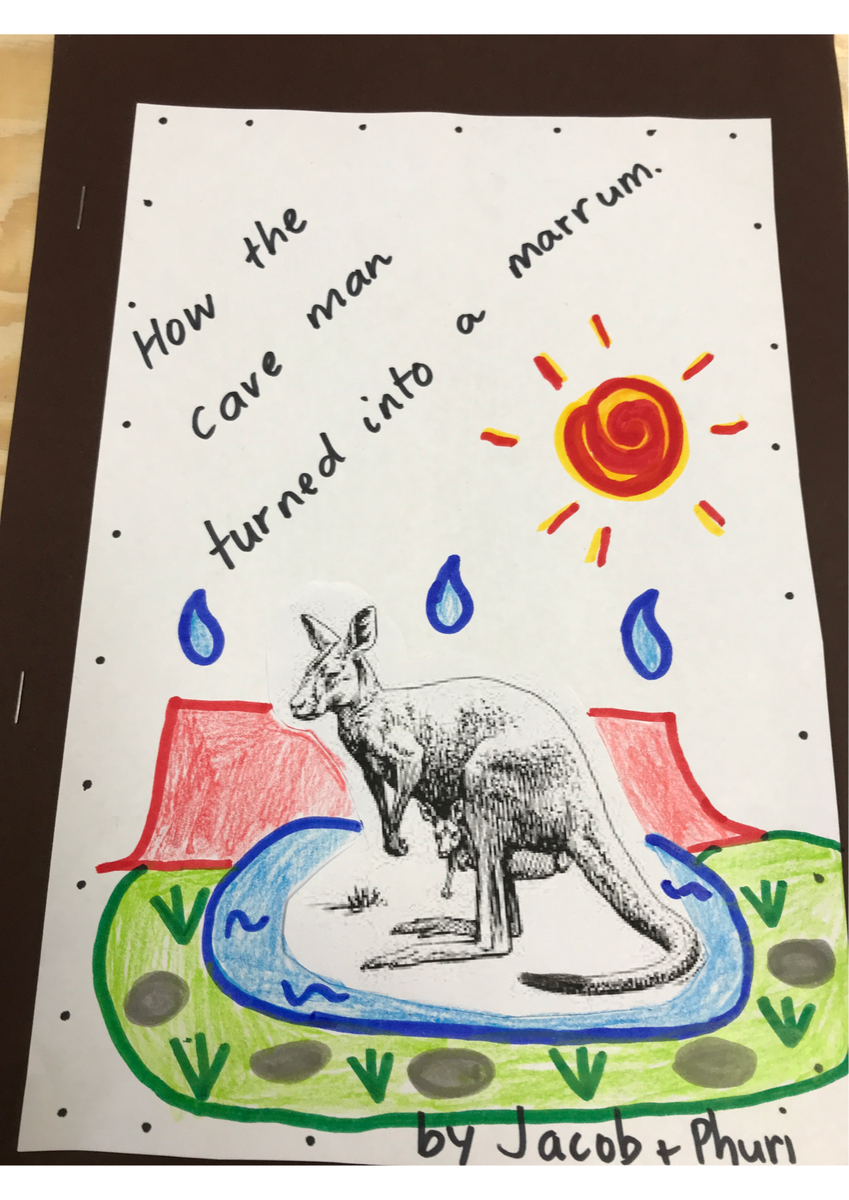 How the
cave man
turned into a marrum.
by Jacob + Phuri